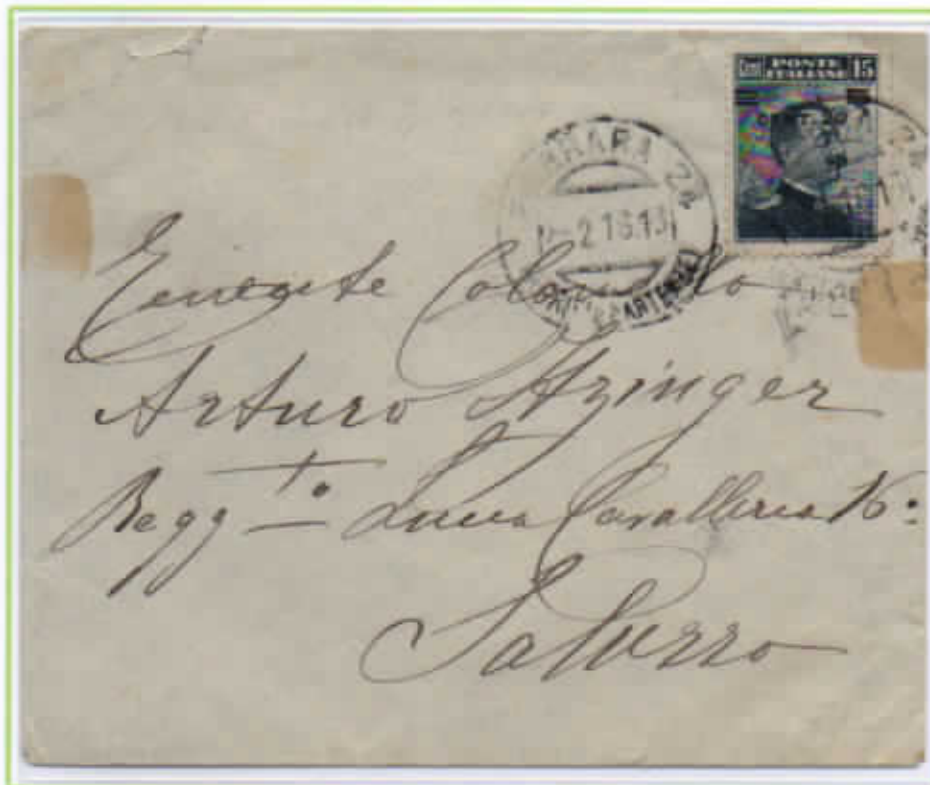 POSTE 15
ITALIANE
2 16.13
Tenente Colonnello
Arturo Azinger
Regg.to Lucca Cavalleria 16º
Saluzzo